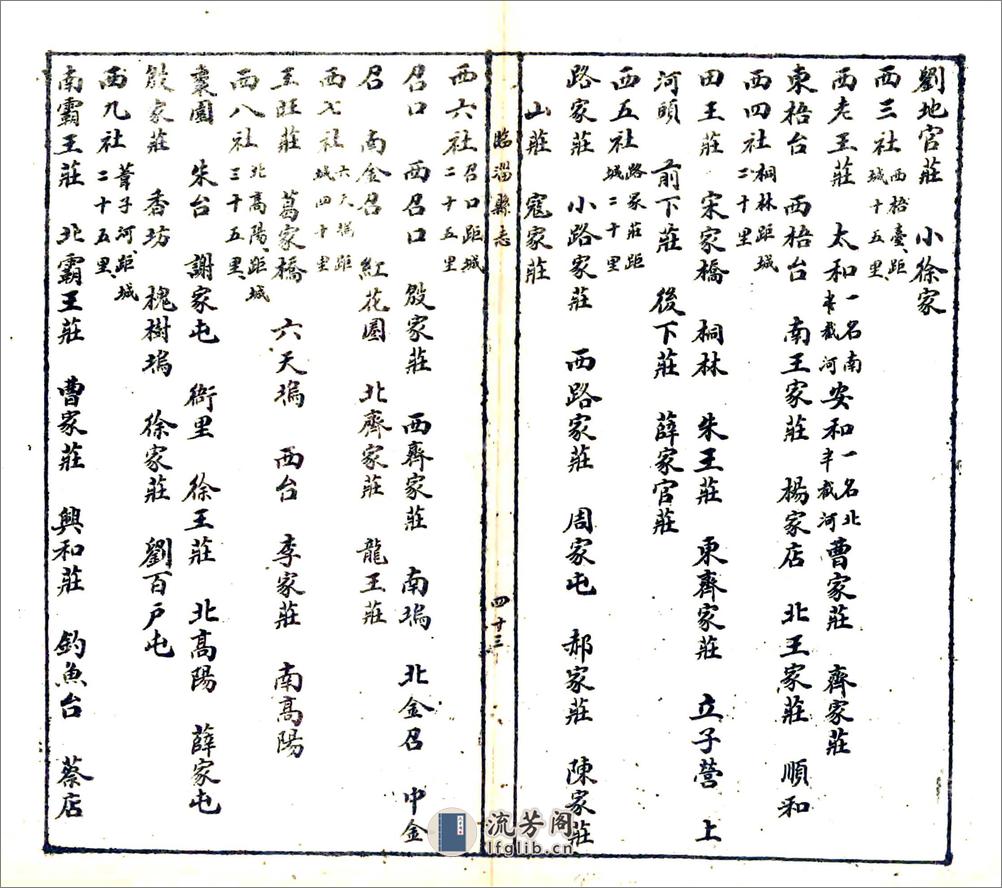 劉地官莊　小徐家
西三社　西梧臺距城十五里
西老王莊　太和一名南半截河　安和一名北半截河　曹家莊　齊家莊
東梧台　西梧台　南王家莊　楊家店　北王家莊　順和
西四社　桐林距城二十里
田王莊　宋家橋　桐林　朱王莊　東齊家莊　立子營　上
河頭　前下莊　後下莊　薛家官莊
西五社　路家莊距城二十里
路家莊　小路家莊　西路家莊　周家屯　郝家莊　陳家莊
山莊　寇家莊
臨淄縣志　四十三
西六社　召口距城二十五里
召口　西召口　殷家莊　西齊家莊　南塢　北金召　中金
召　南金召　紅花園　北齊家莊　龍王莊
西七社　六天塢距城四十里
王旺莊　葛家橋　六天塢　西台　李家莊　南高陽
西八社　北高陽距城三十五里
棗園　朱台　謝家屯　衙里　徐王莊　北高陽　薛家屯
殷家莊　香坊　槐樹塢　徐家莊　劉百戶屯
西九社　葦子河距城二十五里
南霸王莊　北霸王莊　曹家莊　興和莊　釣魚台　蔡店
流芳阁
lfglib.cn